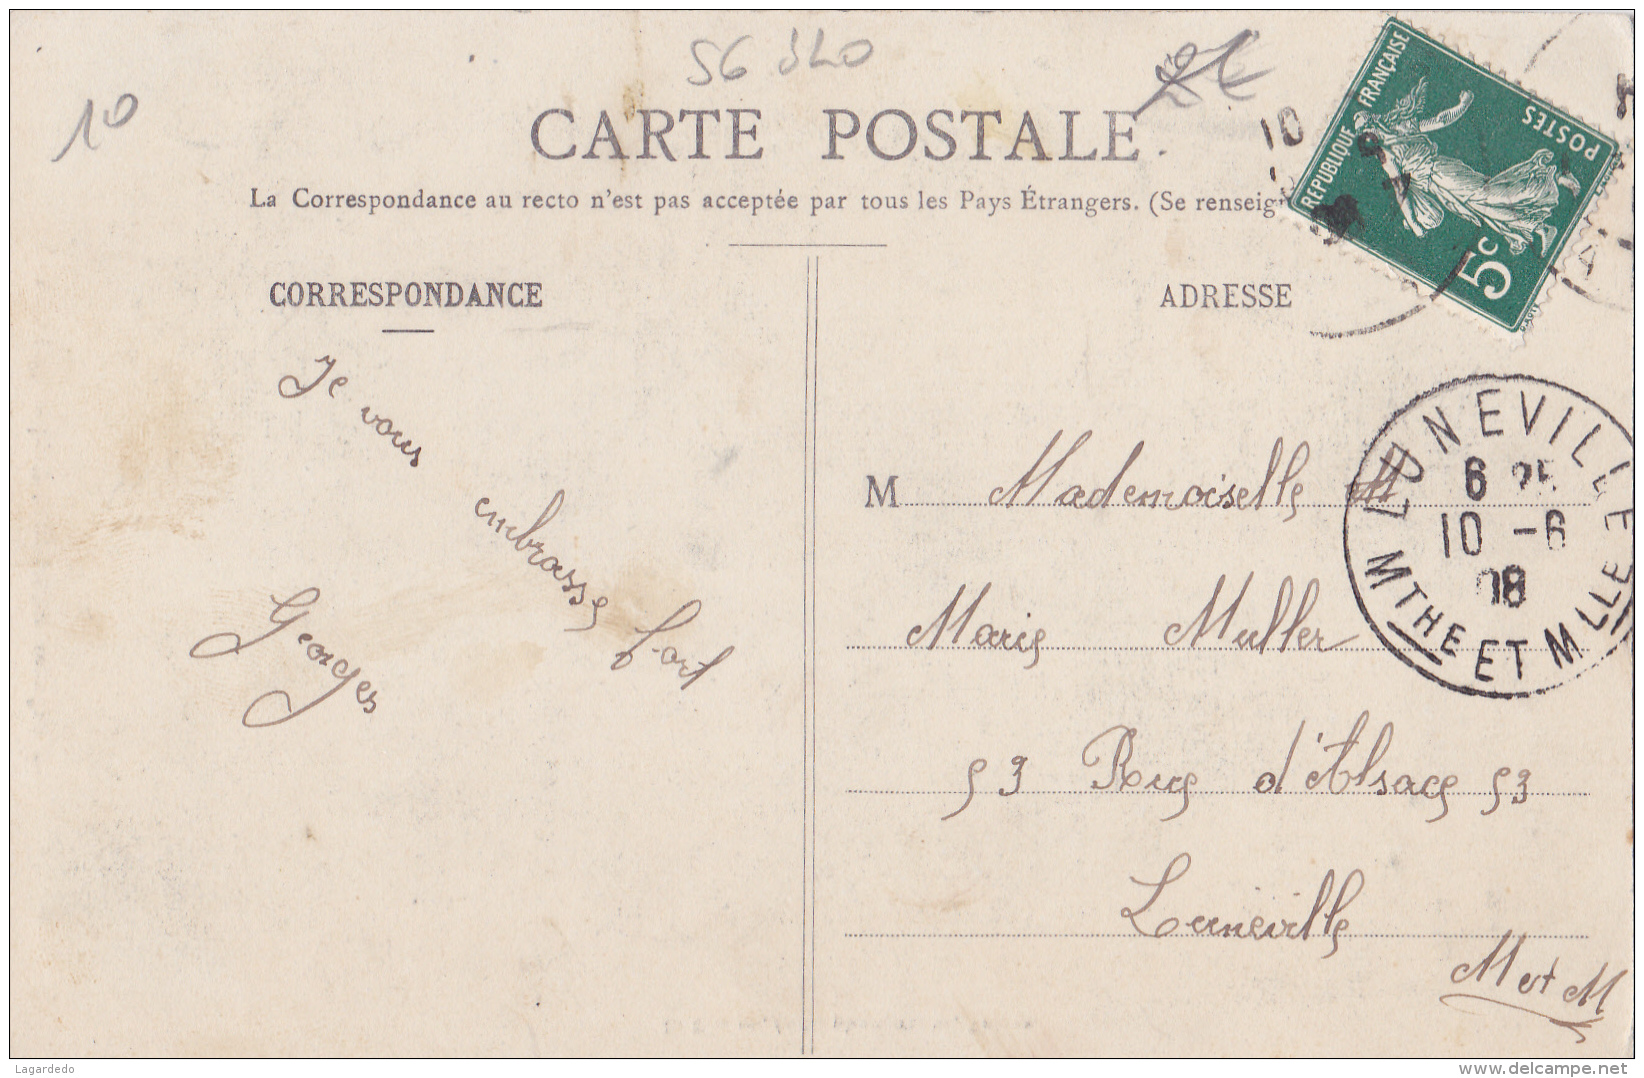 56 540
10
CARTE POSTALE
La Correspondance au recto n'est pas acceptée par tous les Pays Étrangers. (Se renseig
RÉPUBLIQUE FRANÇAISE
POSTES
5c
10
CORRESPONDANCE
ADRESSE
Je vous embrasse fort
Georges
LUNEVILLE
6 25
10 -6
08
MTHE ET MLLE
M Mademoiselle M
Marie Muller
53 Rue d'Alsace 53
Luneville
M et M
Lagardedo
www.delcampe.net